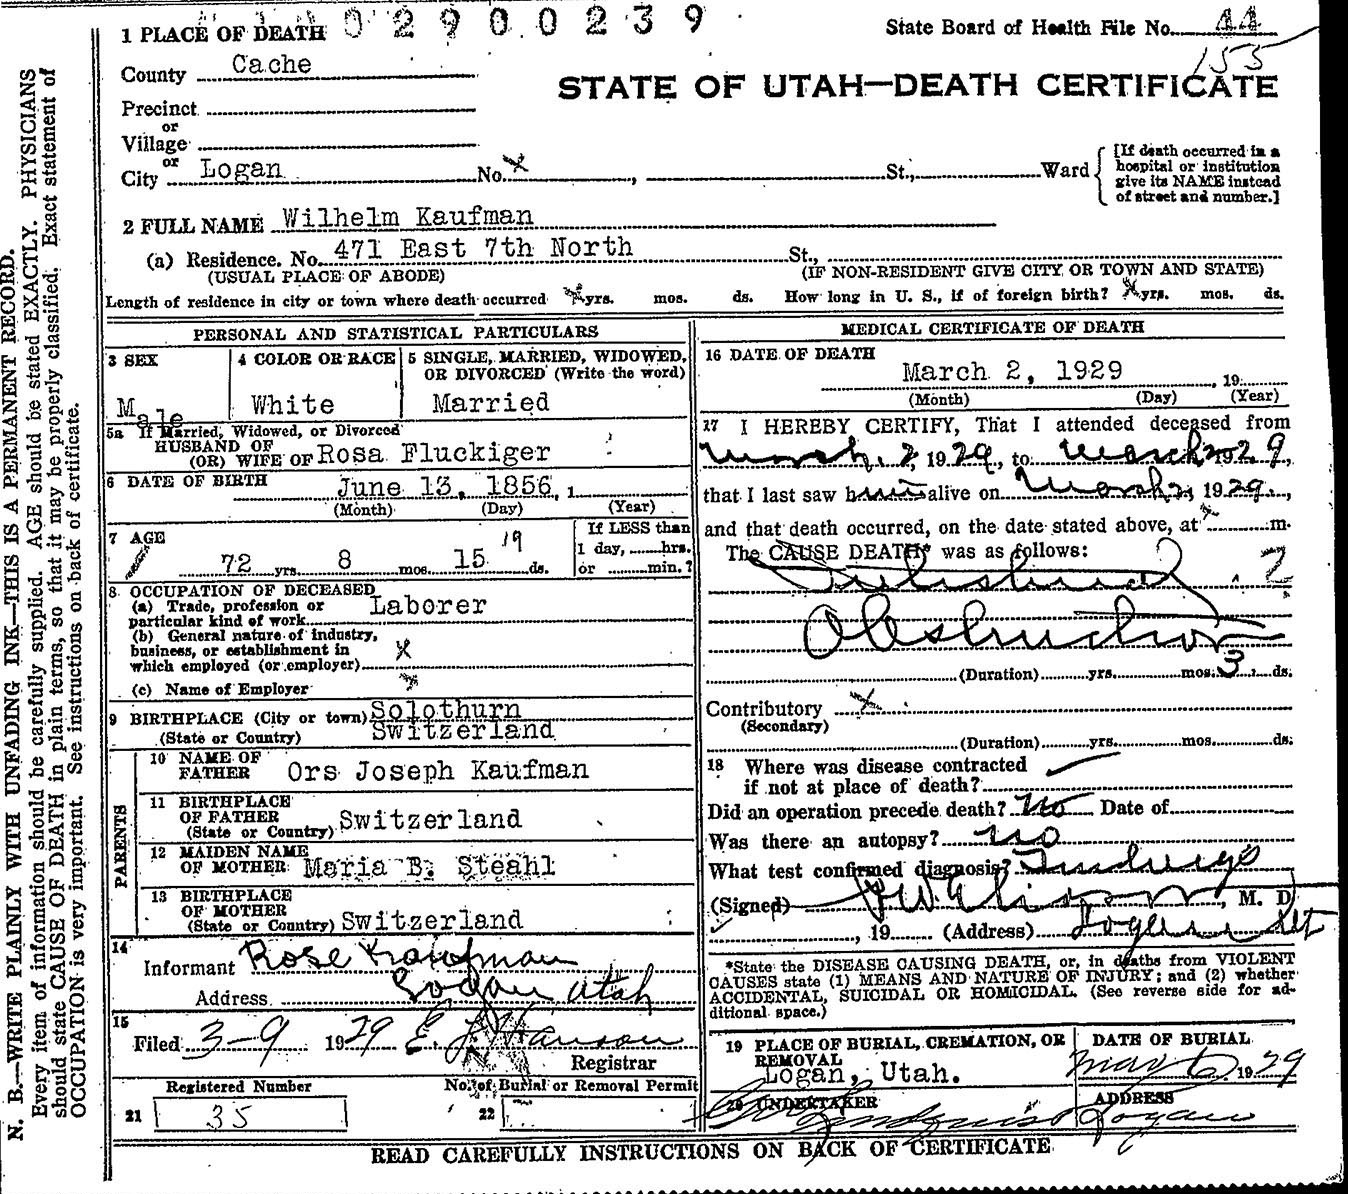 N. B.—WRITE PLAINLY WITH UNFADING INK—THIS IS A PERMANENT RECORD.
Every item of information should be carefully supplied. AGE should be stated EXACTLY. PHYSICIANS
should state CAUSE OF DEATH in plain terms, so that it may be properly classified. Exact statement of
OCCUPATION is very important. See instructions on back of certificate.
0 2 9 0 0 2 3 9
1 PLACE OF DEATH
State Board of Health File No. 44
155
County Cache
STATE OF UTAH—DEATH CERTIFICATE
Precinct
or
Village
or
City Logan No. x , St., Ward
[If death occurred in a
hospital or institution
give its NAME instead
of street and number.]
2 FULL NAME Wilhelm Kaufman
(a) Residence. No. 471 East 7th North St.,
(USUAL PLACE OF ABODE) (IF NON-RESIDENT GIVE CITY OR TOWN AND STATE)
Length of residence in city or town where death occurred x yrs. mos. ds. How long in U. S., if of foreign birth? x yrs. mos. ds.
PERSONAL AND STATISTICAL PARTICULARS
3 SEX
Male
4 COLOR OR RACE
White
5 SINGLE, MARRIED, WIDOWED,
OR DIVORCED (Write the word)
Married
5a If Married, Widowed, or Divorced
HUSBAND OF
(OR) WIFE OF Rosa Fluckiger
6 DATE OF BIRTH June 13, 1856, 1
(Month) (Day) (Year)
7 AGE
72 yrs. 8 mos. 15 19 ds.
If LESS than
1 day, hrs.
or min.?
8 OCCUPATION OF DECEASED
(a) Trade, profession or
particular kind of work Laborer
(b) General nature of industry,
business, or establishment in
which employed (or employer) x
(c) Name of Employer x
9 BIRTHPLACE (City or town) Solothurn
(State or Country) Switzerland
PARENTS
10 NAME OF
FATHER Ors Joseph Kaufman
11 BIRTHPLACE
OF FATHER
(State or Country) Switzerland
12 MAIDEN NAME
OF MOTHER Maria B. Steahl
13 BIRTHPLACE
OF MOTHER
(State or Country) Switzerland
14
Informant Rose Kaufman
Address Logan Utah
15
Filed 3-9 1929 E. L. Hanson
Registrar
Registered Number
21 35
No. of Burial or Removal Permit
22
MEDICAL CERTIFICATE OF DEATH
16 DATE OF DEATH
March 2, 1929 , 19
(Month) (Day) (Year)
17 I HEREBY CERTIFY, That I attended deceased from
March 2, 1929, to March 2 1929,
that I last saw him alive on March 2, 1929,
and that death occurred, on the date stated above, at x m.
The CAUSE DEATH* was as follows:
Intestinal
Obstruction
(Duration) yrs. mos. 3 ds.
Contributory x
(Secondary)
(Duration) yrs. mos. ds.
18 Where was disease contracted
if not at place of death?
Did an operation precede death? no Date of
Was there an autopsy? no
What test confirmed diagnosis? Findings
(Signed) , M. D.
, 19 (Address) Logan Ut
*State the DISEASE CAUSING DEATH, or, in deaths from VIOLENT
CAUSES state (1) MEANS AND NATURE OF INJURY; and (2) whether
ACCIDENTAL, SUICIDAL OR HOMICIDAL. (See reverse side for ad-
ditional space.)
19 PLACE OF BURIAL, CREMATION, OR
REMOVAL
Logan, Utah.
DATE OF BURIAL
Mar 6 1929
20 UNDERTAKER
ADDRESS
Logan
READ CAREFULLY INSTRUCTIONS ON BACK OF CERTIFICATE